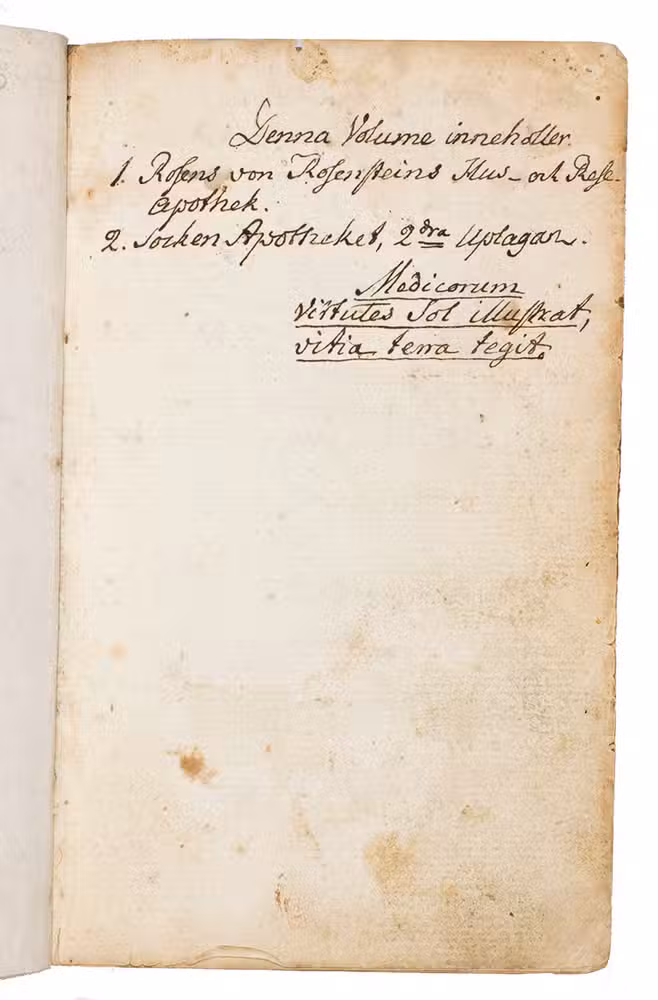 Denna Volume innehåller.
1. Rosens von Rosensteins Hus- och Rese-
apothek.
2. Socken Apotheket, 2dra Uplagan.
Medicorum
virtutes Sol illustrat,
vitia terra tegit.